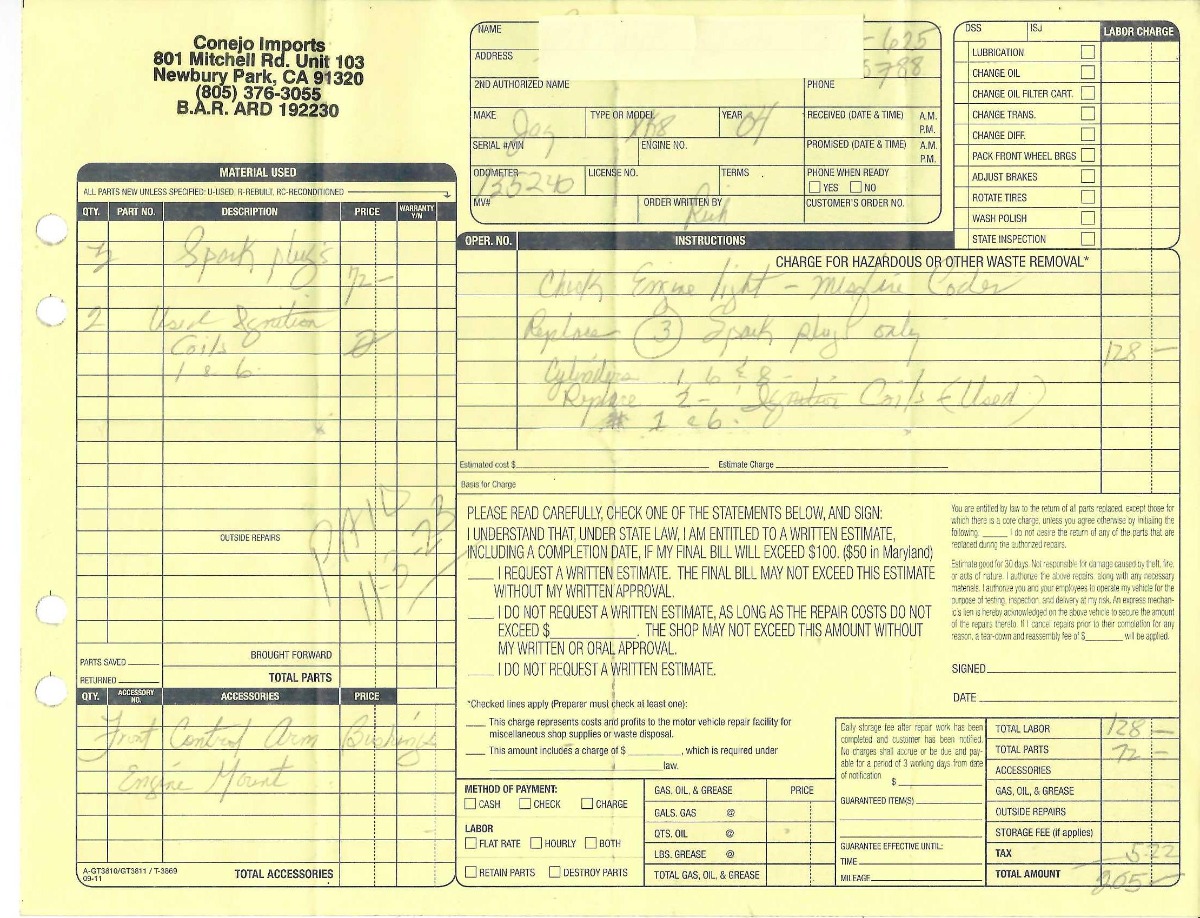 Conejo Imports
801 Mitchell Rd. Unit 103
Newbury Park, CA 91320
(805) 376-3055
B.A.R. ARD 192230
NAME
- 625
ADDRESS
5788
2ND AUTHORIZED NAME
PHONE
MAKE Jag TYPE OR MODEL XK8 YEAR 04 RECEIVED (DATE & TIME) A.M. P.M.
SERIAL #/VIN ENGINE NO. PROMISED (DATE & TIME) A.M. P.M.
ODOMETER 135240 LICENSE NO. TERMS PHONE WHEN READY
YES NO
MV# ORDER WRITTEN BY Rich CUSTOMER'S ORDER NO.
DSS ISJ LABOR CHARGE
LUBRICATION
CHANGE OIL
CHANGE OIL FILTER CART.
CHANGE TRANS.
CHANGE DIFF.
PACK FRONT WHEEL BRGS
ADJUST BRAKES
ROTATE TIRES
WASH POLISH
STATE INSPECTION
MATERIAL USED
ALL PARTS NEW UNLESS SPECIFIED: U-USED, R-REBUILT, RC-RECONDITIONED
QTY. PART NO. DESCRIPTION PRICE WARRANTY Y/N
3 Spark plugs 72 -
2 Used Ignition
Coils
1 & 6
PAID
11-3-23
OUTSIDE REPAIRS
PARTS SAVED BROUGHT FORWARD
RETURNED TOTAL PARTS
QTY. ACCESSORY NO. ACCESSORIES PRICE
Front Control Arm Bushings
Engine Mount
A-GT3810/GT3811 / T-3869
09-11
TOTAL ACCESSORIES
OPER. NO. INSTRUCTIONS
CHARGE FOR HAZARDOUS OR OTHER WASTE REMOVAL*
Check Engine light - Misfire Codes
Replace 3 Spark plugs only 128 -
Cylinders 1, 6 & 8 -
Replace 2 - Ignition Coils (Used)
# 1 & 6.
Estimated cost $ Estimate Charge
Basis for Charge
PLEASE READ CAREFULLY, CHECK ONE OF THE STATEMENTS BELOW, AND SIGN:
I UNDERSTAND THAT, UNDER STATE LAW, I AM ENTITLED TO A WRITTEN ESTIMATE,
INCLUDING A COMPLETION DATE, IF MY FINAL BILL WILL EXCEED $100. ($50 in Maryland)
I REQUEST A WRITTEN ESTIMATE. THE FINAL BILL MAY NOT EXCEED THIS ESTIMATE
WITHOUT MY WRITTEN APPROVAL.
I DO NOT REQUEST A WRITTEN ESTIMATE, AS LONG AS THE REPAIR COSTS DO NOT
EXCEED $ . THE SHOP MAY NOT EXCEED THIS AMOUNT WITHOUT
MY WRITTEN OR ORAL APPROVAL.
I DO NOT REQUEST A WRITTEN ESTIMATE.
*Checked lines apply (Preparer must check at least one):
This charge represents costs and profits to the motor vehicle repair facility for
miscellaneous shop supplies or waste disposal.
This amount includes a charge of $ , which is required under
law.
You are entitled by law to the return of all parts replaced, except those for
which there is a core charge, unless you agree otherwise by initialing the
following. I do not desire the return of any of the parts that are
replaced during the authorized repairs.
Estimate good for 30 days. Not responsible for damage caused by theft, fire,
or acts of nature. I authorize the above repairs, along with any necessary
materials. I authorize you and your employees to operate my vehicle for the
purpose of testing, inspection, and delivery at my risk. An express mechan-
ic's lien is hereby acknowledged on the above vehicle to secure the amount
of the repairs thereto. If I cancel repairs prior to their completion for any
reason, a tear-down and reassembly fee of $ will be applied.
SIGNED
DATE
METHOD OF PAYMENT:
CASH CHECK CHARGE
LABOR
FLAT RATE HOURLY BOTH
RETAIN PARTS DESTROY PARTS
GAS, OIL, & GREASE PRICE
GALS. GAS @
QTS. OIL @
LBS. GREASE @
TOTAL GAS, OIL, & GREASE
Daily storage fee after repair work has been
completed and customer has been notified.
No charges shall accrue or be due and pay-
able for a period of 3 working days from date
of notification
$
GUARANTEED ITEM(S)
GUARANTEE EFFECTIVE UNTIL:
TIME
MILEAGE
TOTAL LABOR 128 -
TOTAL PARTS 72 -
ACCESSORIES
GAS, OIL, & GREASE
OUTSIDE REPAIRS
STORAGE FEE (if applies)
TAX 5.22
TOTAL AMOUNT 205 -